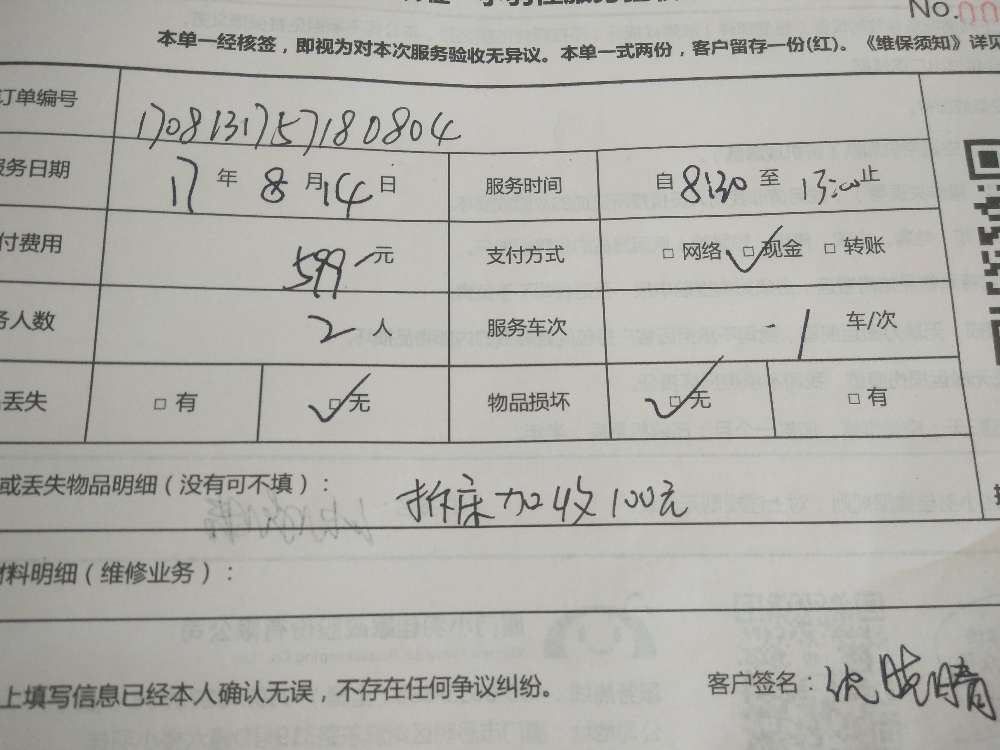 No.00
本单一经核签，即视为对本次服务验收无异议。本单一式两份，客户留存一份(红)。《维保须知》详见
订单编号 170813175718 0804
服务日期 17 年 8 月 14 日 服务时间 自 8:30 至 13:00 止
付费用 599 元 支付方式 □ 网络 □ 现金 □ 转账
务人数 2 人 服务车次 1 车/次
丢失 □ 有 □ 无 物品损坏 □ 无 □ 有
或丢失物品明细（没有可不填）： 拆床加收100元
材料明细（维修业务）：
上填写信息已经本人确认无误，不存在任何争议纠纷。 客户签名：沈晓晴